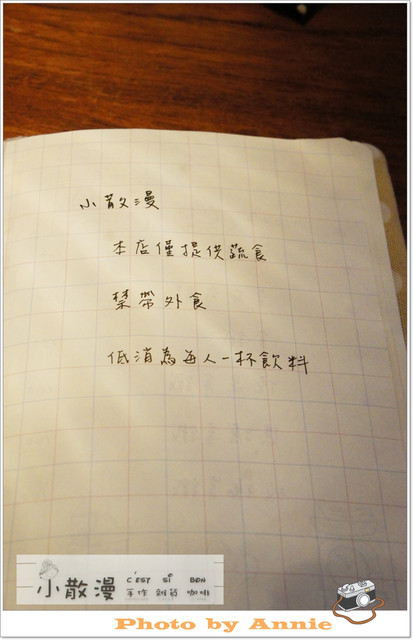 小散漫
本店僅提供蔬食
禁帶外食
低消為每人一杯飲料
小散漫
C'EST SI BON
手作 雜貨 咖啡
Photo by Annie